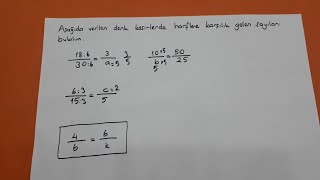 Aşağıda verilen denk kesirlerde harflere karşılık gelen sayıları
bulalım.
18:6 / 30:6 = 3 / a=5   3/5   10×5 / b×5 = 50 / 25
6:3 / 15:3 = c=2 / 5
4 / b = 6 / k